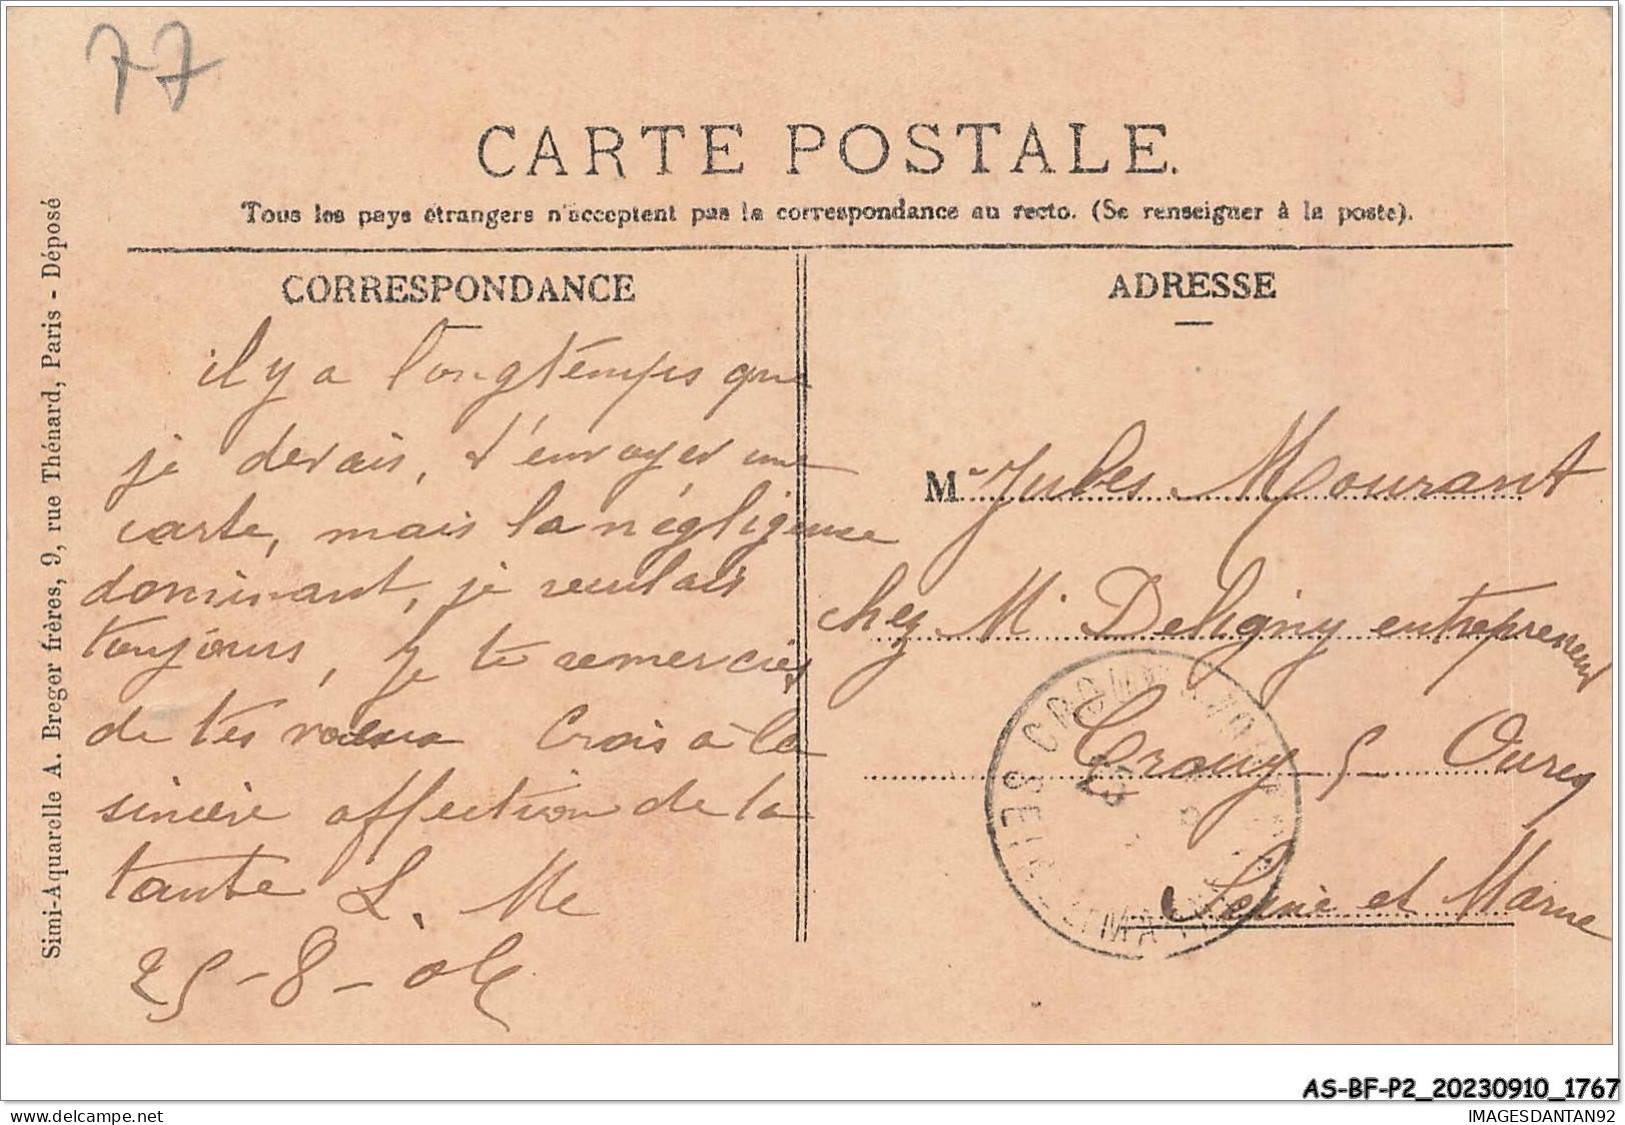 77
CARTE POSTALE.
Tous les pays étrangers n'acceptent pas la correspondance au recto. (Se renseigner à la poste).
Simi-Aquarelle A. Breger frères, 9, rue Thénard, Paris - Déposé
CORRESPONDANCE
il y a longtemps que
je devais, t'envoyer une
carte, mais la négligence
dominant, je reculais
toujours, je te remercies
de tes vœux Crois à la
sincère affection de la
tante L. Me
25-8-06
ADRESSE
M. Jules Mourant
chez Mr Deligny entrepreneur
Crouy s Ourcq
Seine et Marne
AS-BF-P2_20230910_1767
www.delcampe.net
IMAGESDANTAN92